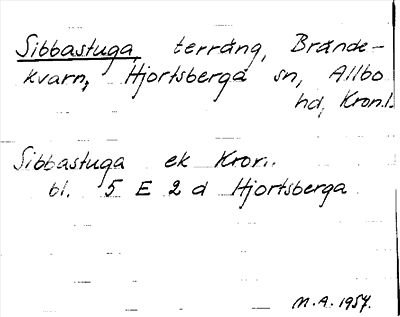 Sibbastuga, terräng, Brände-
kvarn, Hjortsberga sn, Allbo
hd, Kron.l.
Sibbastuga ek Kron.
bl. 5 E 2 d Hjortsberga
M.A. 1957.